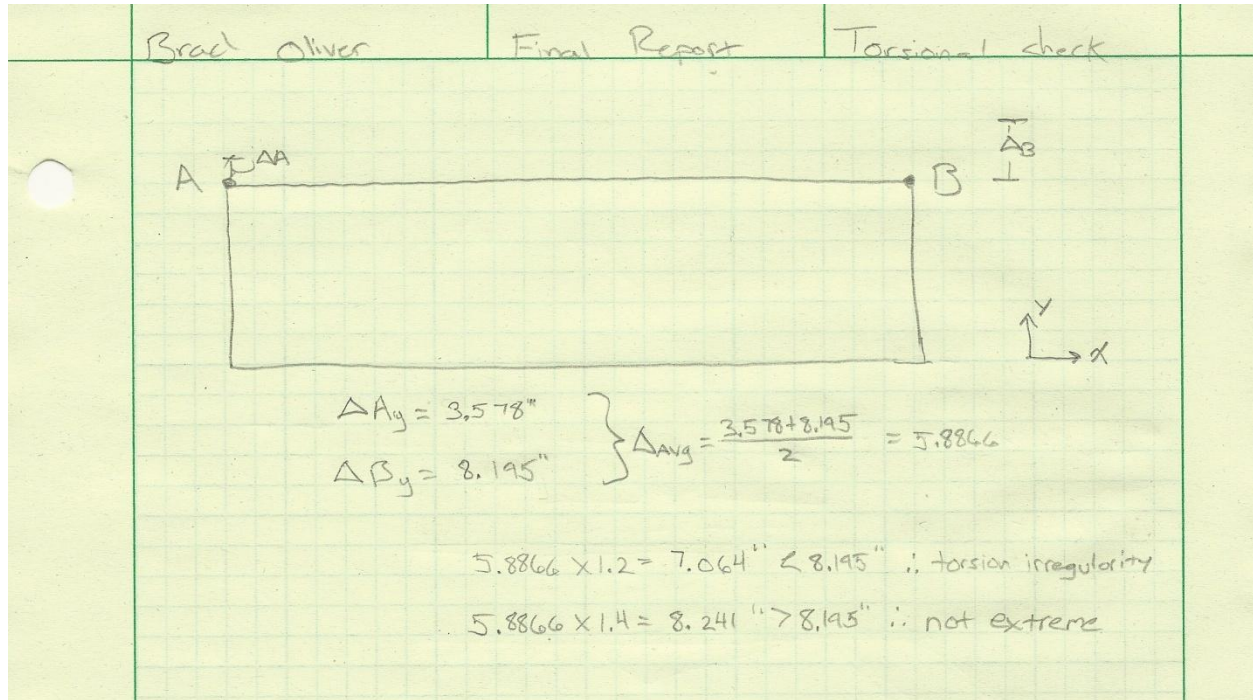 Brad Oliver Final Report Torsional check
A ΔA B ΔB
Y
X
ΔAy = 3.578"
ΔBy = 8.195"
} ΔAvg = (3.578+8.195)/2 = 5.8866
5.8866 X 1.2 = 7.064" < 8.195" ∴ torsion irregularity
5.8866 X 1.4 = 8.241" > 8.195" ∴ not extreme